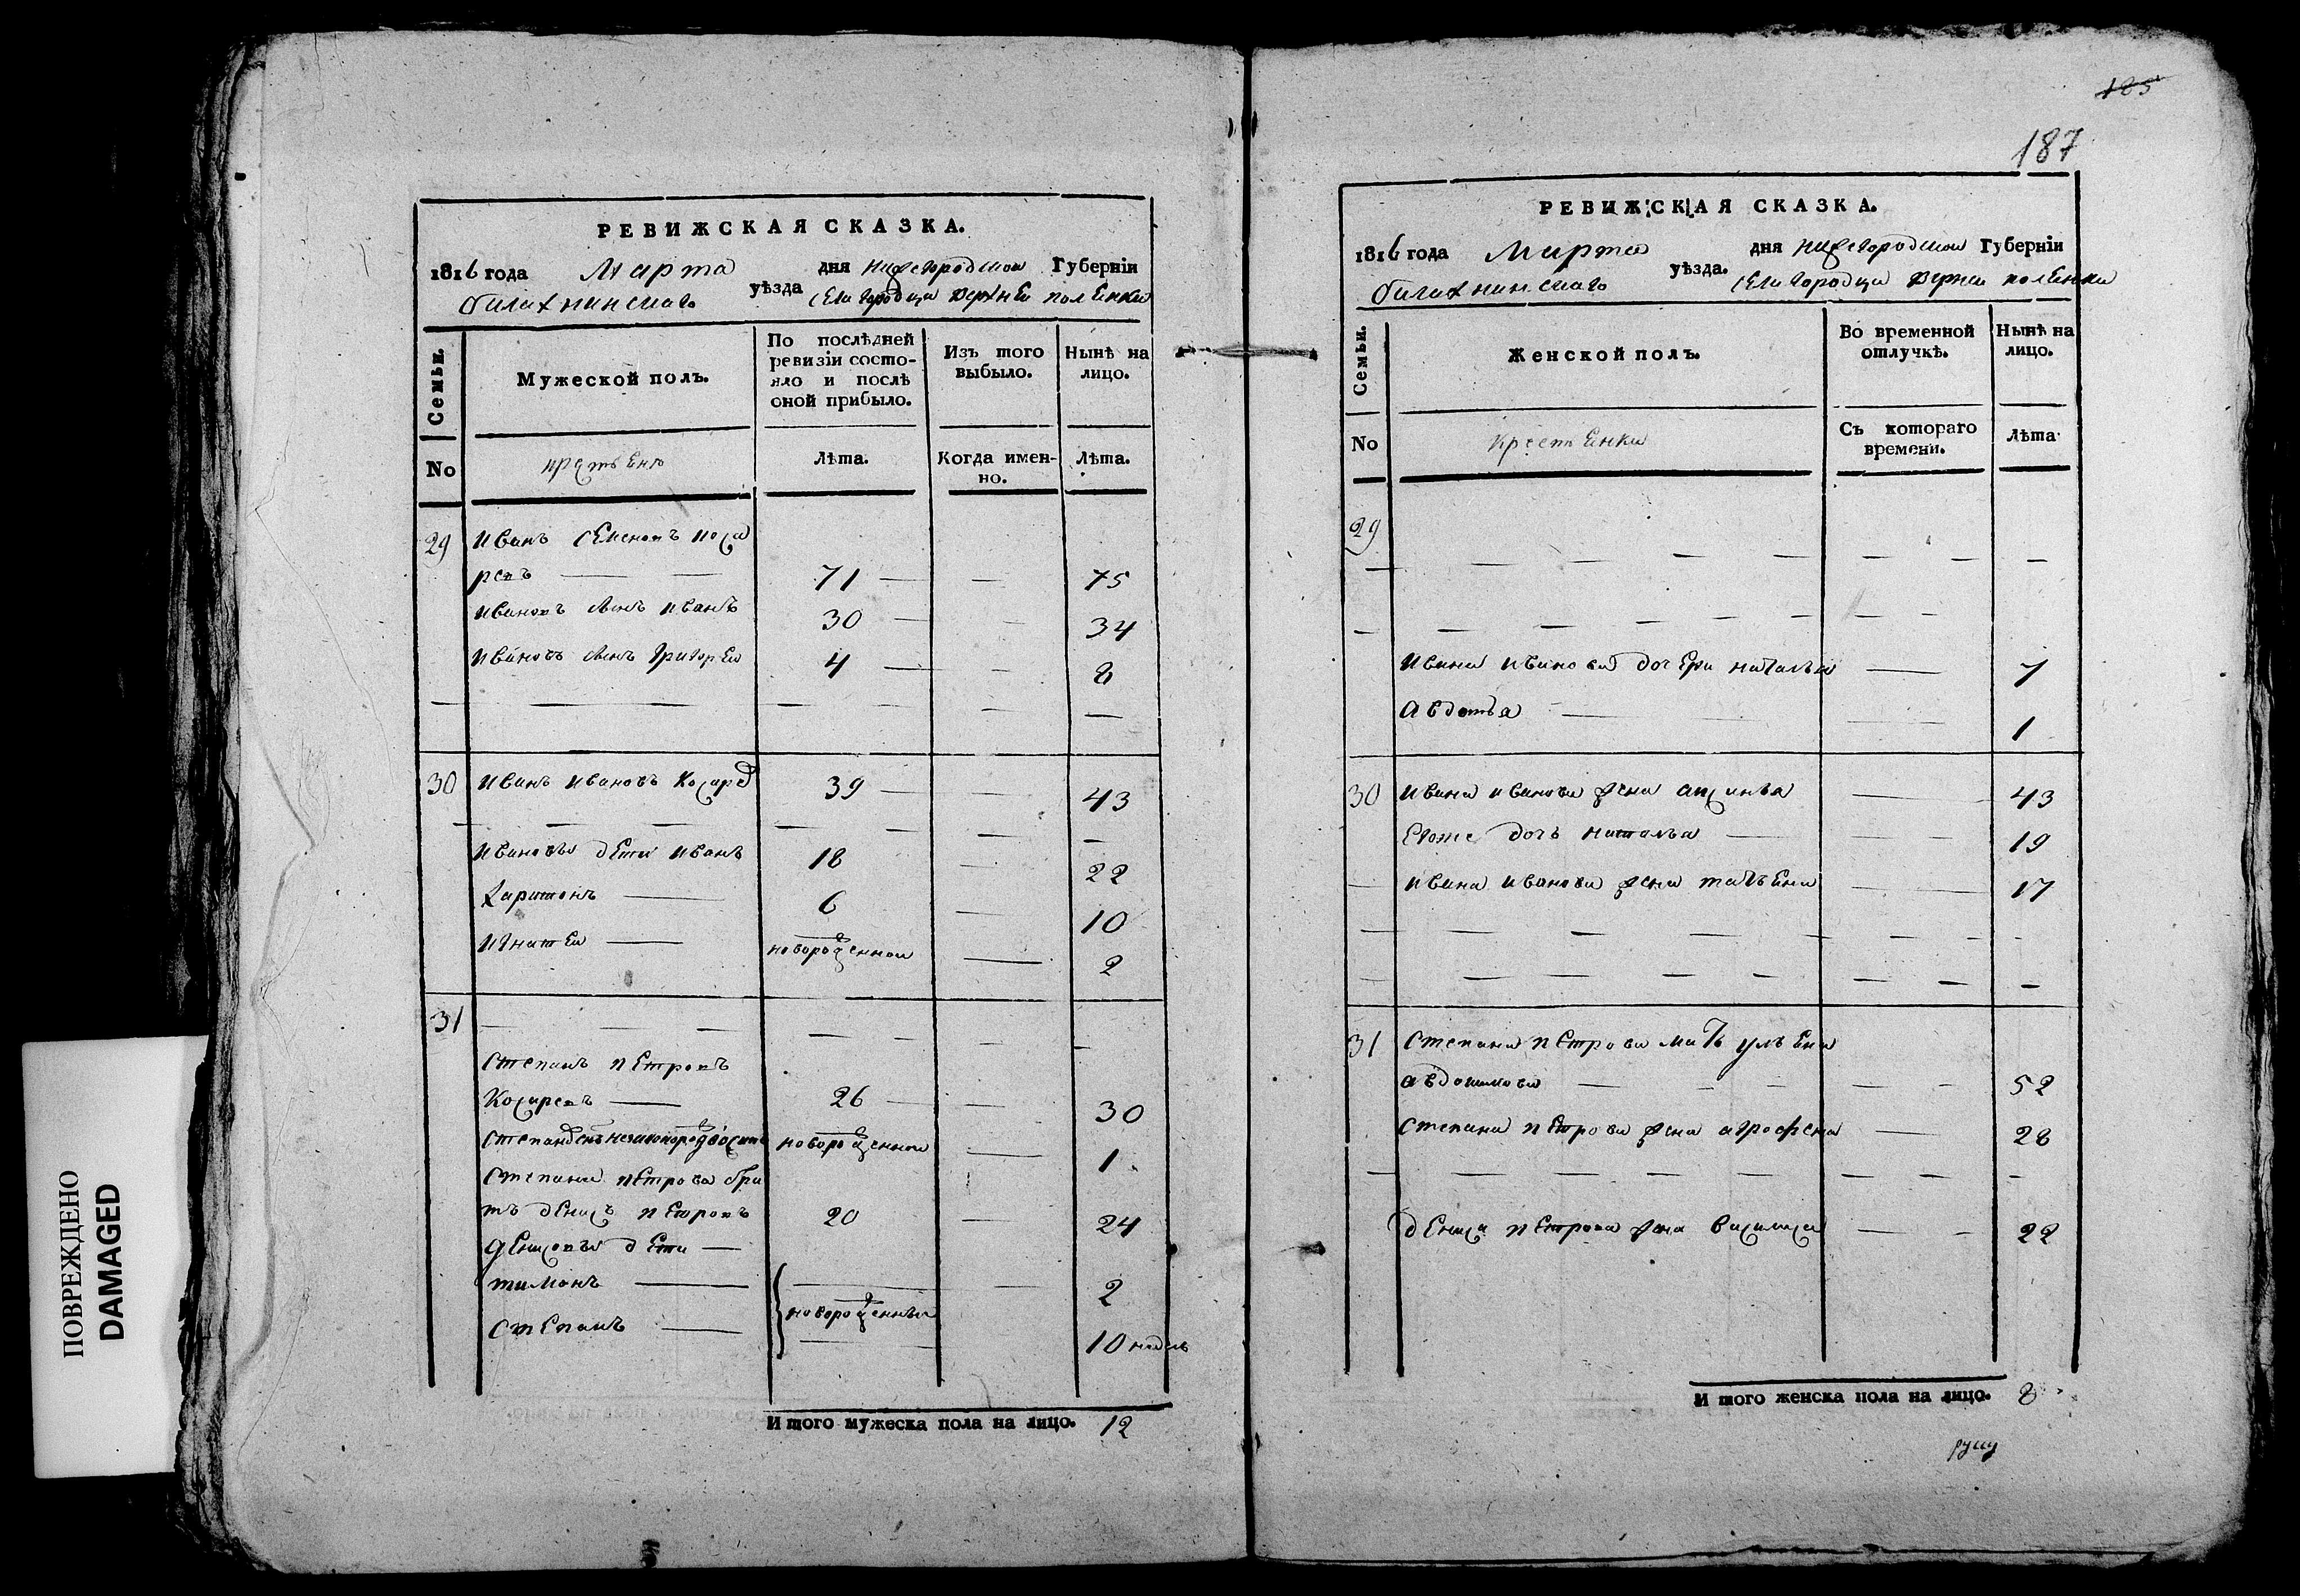 ПОВРЕЖДЕНО
DAMAGED
РЕВИЖСКАЯ СКАЗКА.
1816 года Марта дня нижегородской Губерніи
балахнинскаго уѣзда села городца верхней полЕнки
Семьи.
Мужеской полъ.
По послѣдней ревизіи состо-
яло и послѣ
оной прибыло.
Изъ того выбыло.
Нынѣ на лицо.
No
Лѣта.
Когда имен-
но.
Лѣта.
29 иванъ семеновъ коса
ревъ — 71 — 75
ивановъ сынъ иванъ 30 — 34
ивановъ сынъ григорей 4 — 8
30 иванъ ивановъ косарев 39 — 43
ивановы дети иванъ 18 — 22
харитонъ — 6 — 10
игнатей — новорожденной — 2
31
степанъ петровъ
косаревъ — 26 — 30
новорожденной — 1
степана петрова бра
тъ денисъ петровъ 20 — 24
денисовы дети —
тимонъ — 2
новорожденныя
степанъ — 10 недель
Итого мужеска пола на лицо. 12
185
187
РЕВИЖСКАЯ СКАЗКА.
1816 года Марта дня нижегородской Губерніи
балахнинскаго уѣзда. села городца верхней полЕнки
Семьи.
Женской полъ.
Во временной отлучкѣ.
Нынѣ на лицо.
No
крестьЕнки
Съ котораго времени.
Лѣта
29
ивана иванова дочери наталья — 7
авдотья — 1
30 ивана иванова жена аксинья — 43
Егоже дочь наталья — 19
ивана иванова жена татьЕна — 17
31 степана петрова мать ульЕна
авдокимова — 52
степана петрова жена аграфена — 28
дениса петрова жена василиса — 22
Итого женска пола на лицо. 8